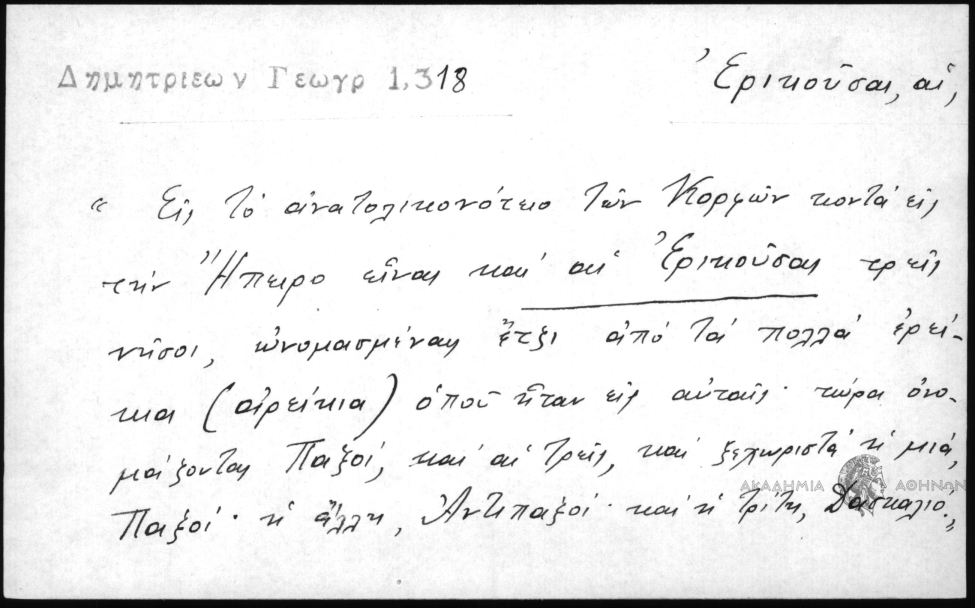 Δημητριεων Γεωγρ 1,318
Ἐρικοῦσαι, αἱ,
" Εἰς τὸ ἀνατολικονότειο τῶν Κορφῶν κοντὰ εἰς
τὴν Ἤπειρο εἶναι καὶ αἱ Ἐρικοῦσαι τρεῖς
νῆσοι, ὠνομασμέναι ἔτζι ἀπὸ τὰ πολλὰ ἐρεί-
κια (αἰρείκια) ὁποῦ ἦταν εἰς αὐταῖς· τώρα ὀνο-
μάζονται Παξοί, καὶ αἱ τρεῖς, καὶ ξεχωριστὰ ἡ μιά,
Παξοί· ἡ ἄλλη, Ἀντιπαξοί· καὶ ἡ τρίτη, Δασκαλιό.,,
ΑΚΑΔΗΜΙΑ ΑΘΗΝΩΝ